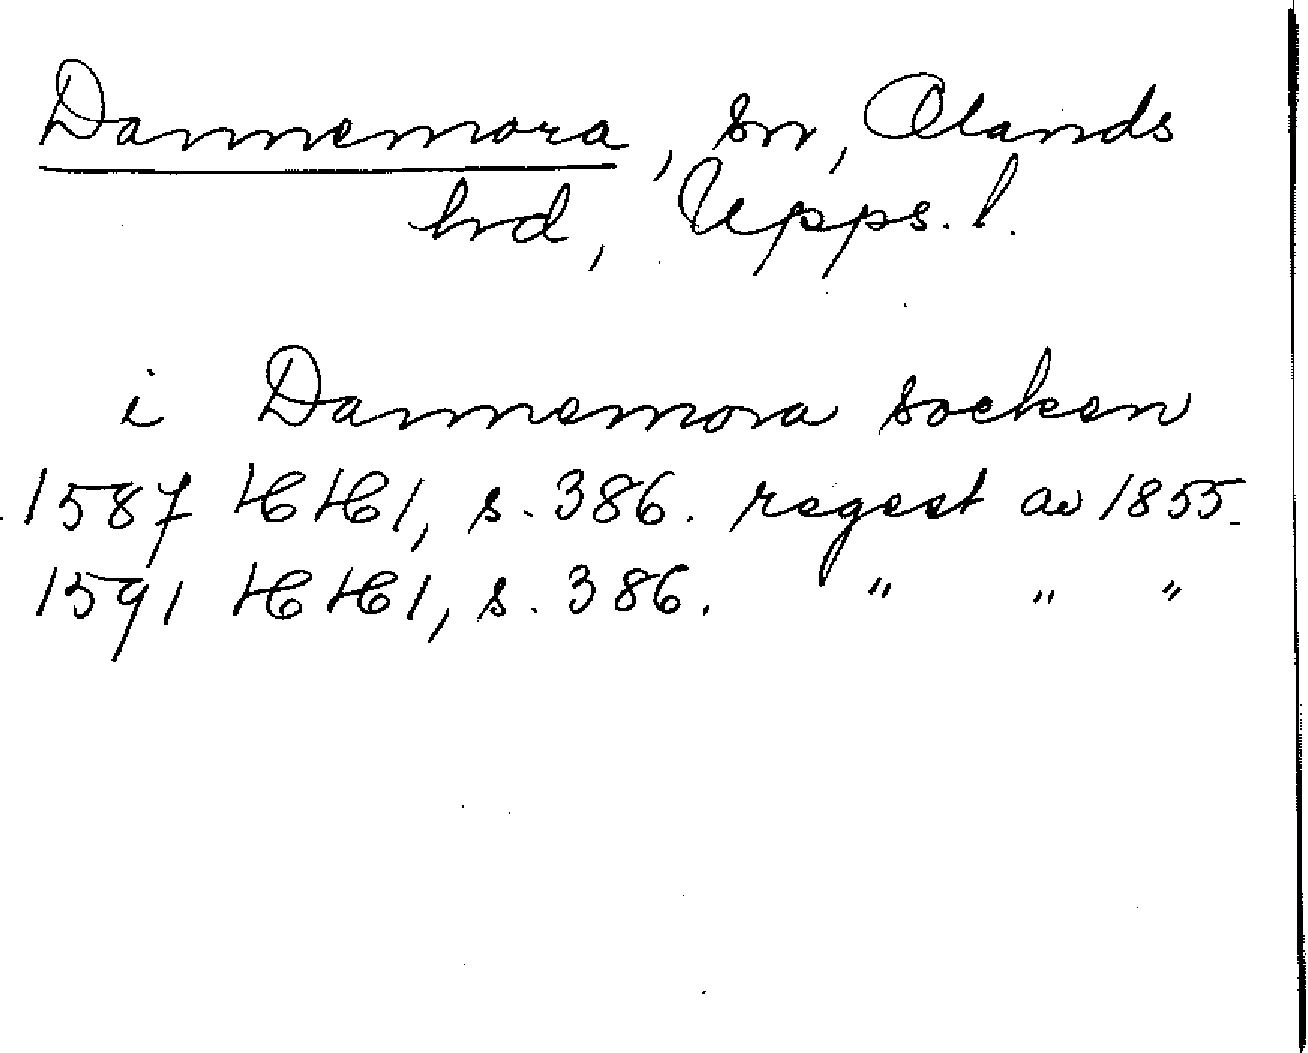 Dannemora, sn, Olands
hd, Upps. l.
i Dannemora socken
1587 HH1, s. 386. regest av 1855.
1591 HH1, s. 386. " " "